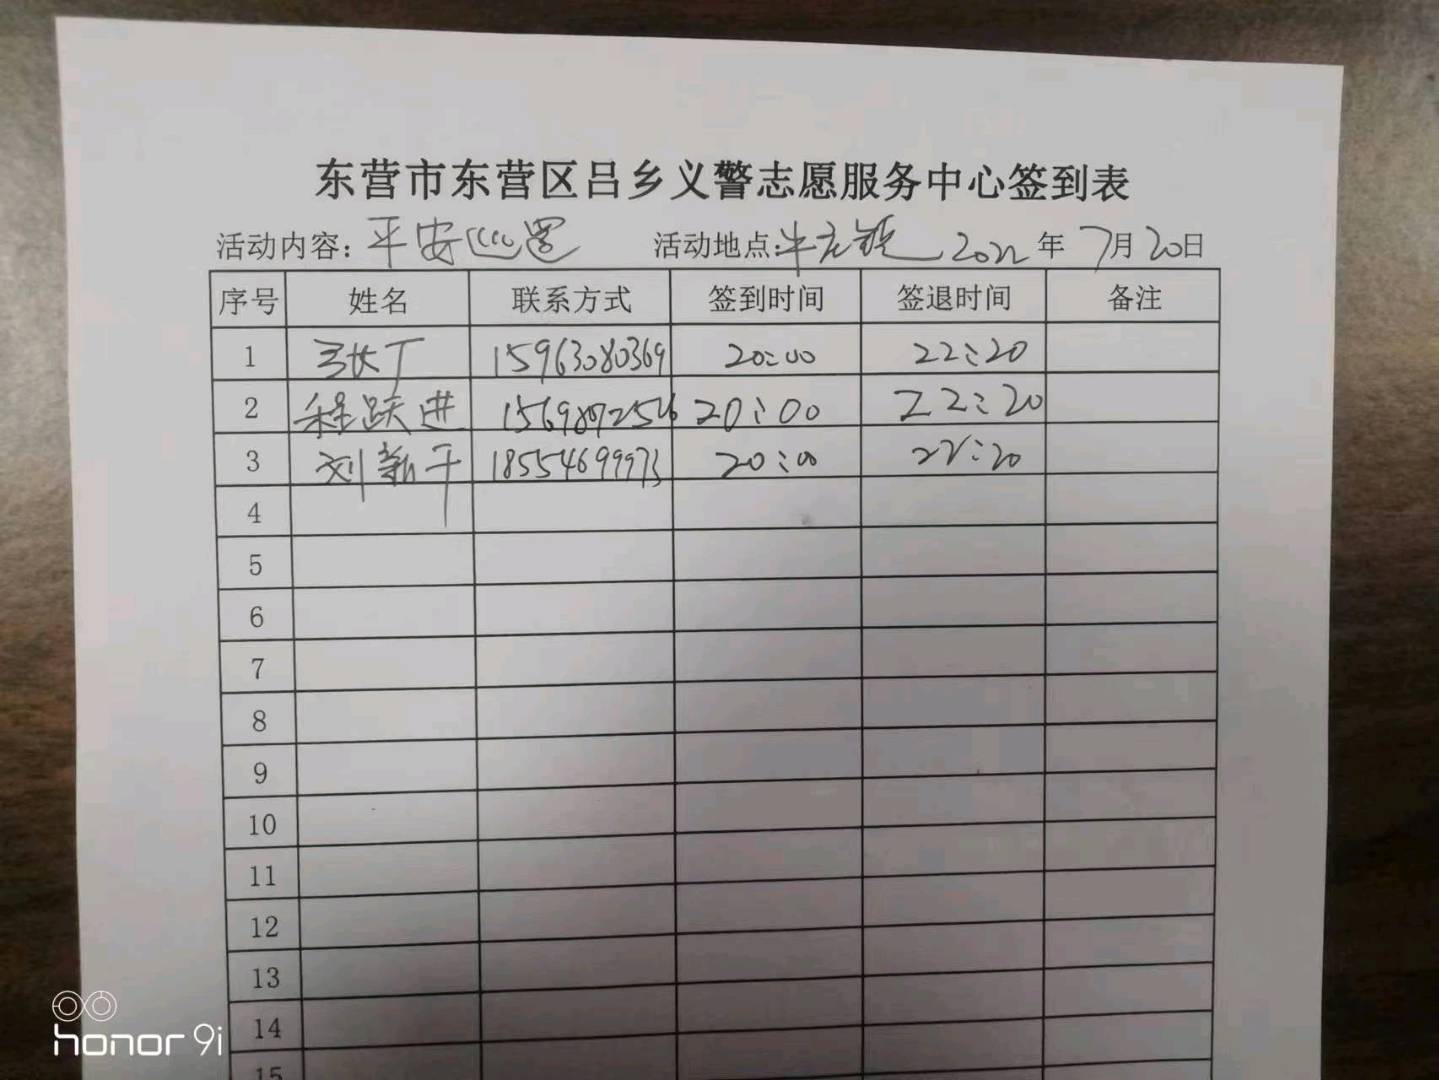 东营市东营区吕乡义警志愿服务中心签到表
活动内容：平安巡逻 活动地点：牛庄镇 2022年7月20日
序号 姓名 联系方式 签到时间 签退时间 备注
1 15963080369 20:00 22:20
2 程跃进 20:00 22:20
3 刘新千 18554699973 20:00 22:20
4
5
6
7
8
9
10
11
12
13
14
15
honor 9i